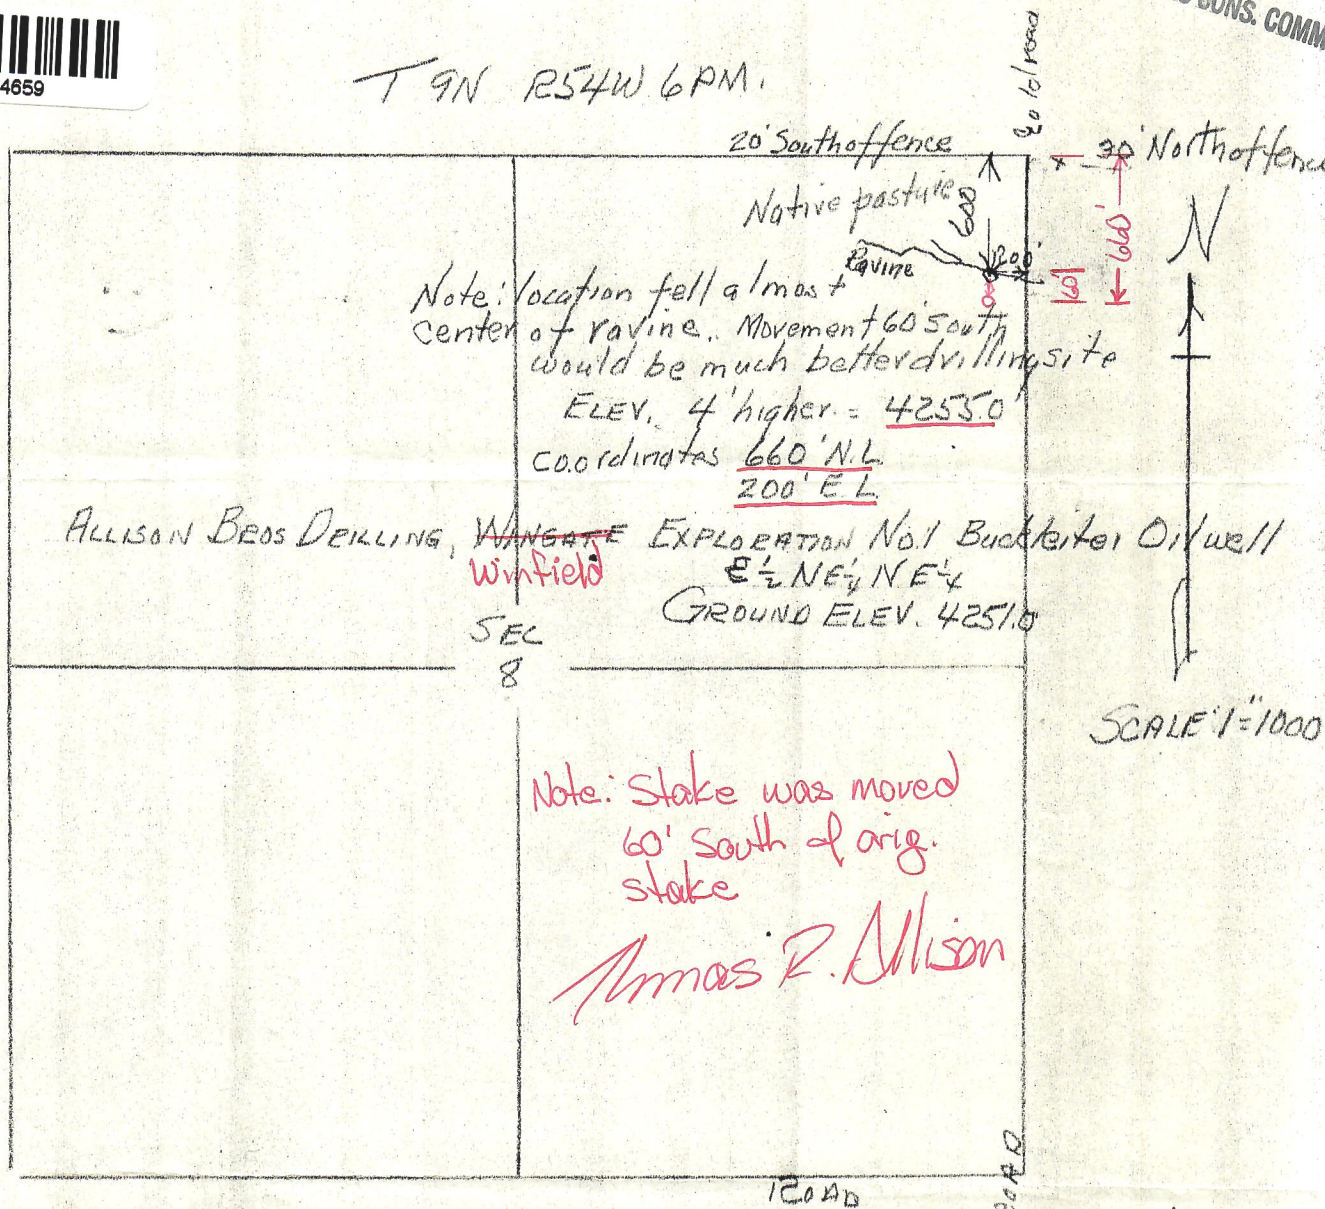 CONS. COMM
4659
T 9N R54W 6PM.
old road
20' South of fence
30' North of fence
Native pasture
600
660'
N
Ravine
200'
60'
Note: location fell almost
center of ravine. Movement 60' south
would be much better drilling site
ELEV. 4' higher = 4255.0
Coordinates 660' N.L.
200' E.L.
ALLISON BROS DRILLING, WINGATE EXPLORATION No.1 Buckleiter Oil well
Winfield
E½ NE¼ NE¼
GROUND ELEV. 4251.0
SEC
8
SCALE 1"=1000
Note: Stake was moved
60' South of orig.
stake
Thomas R. Allison
ROAD
ROAD